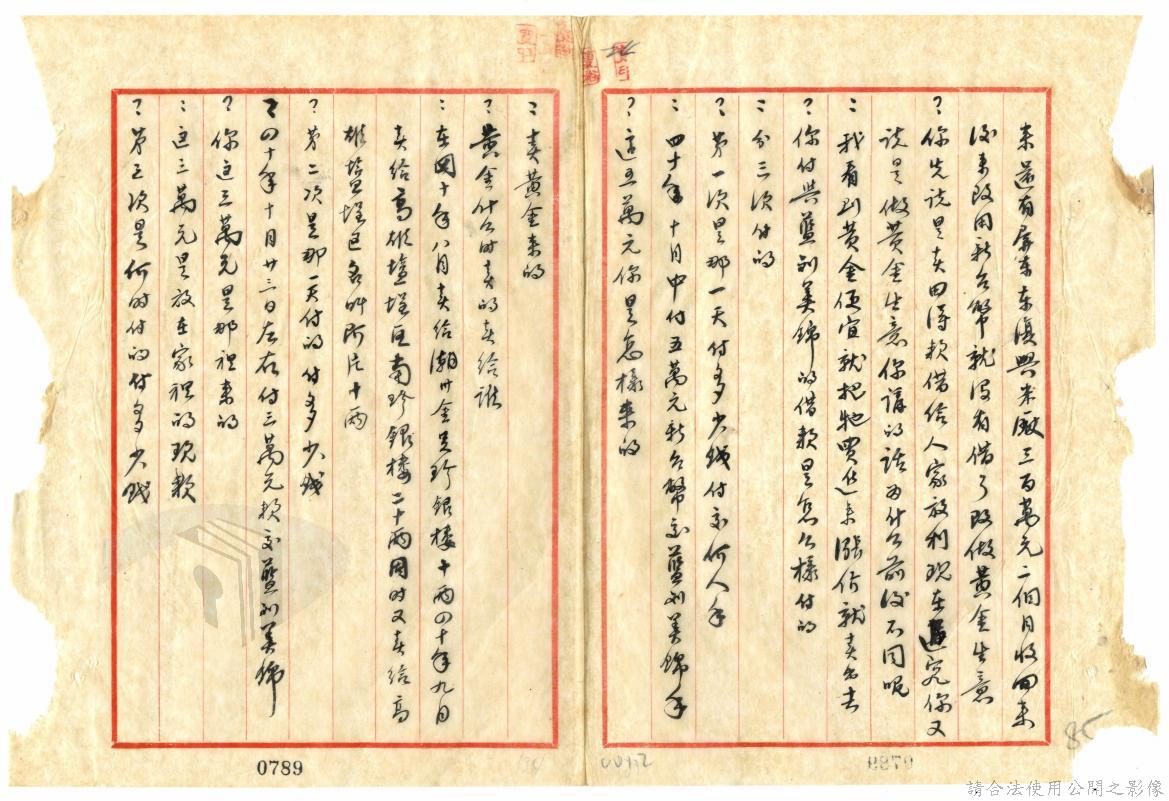 來還有屏東東復興米廠三百萬元二個月收回來
後來改用新台幣就沒有借了改做黃金生意
？你先說是賣田得款借給人家放利現在追究你又
說是做黃金生意你講的話為什么前後不同呢
：我看到黃金便宜就把牠買進來漲價就賣出去
？你付與藍利美錦的借款是怎么樣付的
：分三次付的
？第一次是那一天付多少錢付交何人手
：四十年十月中付五萬元新台幣交藍利美錦手
？這五萬元你是怎樣來的
：賣黃金來的
？黃金什么時賣的賣給誰
：在四十年八月賣給潮州金足珍銀樓十兩四十年九月
賣給高雄鹽埕區南珍銀樓二十兩同時又賣給高
雄鹽埕區名叫阿片十兩
？第二次是那一天付的付多少錢
：四十年十月廿三日左右付三萬元款交藍利美錦
？你這三萬元是那裡來的
：這三萬元是放在家裡的現款
？第三次是何時付的付多少錢
0789
85
請合法使用公開之影像